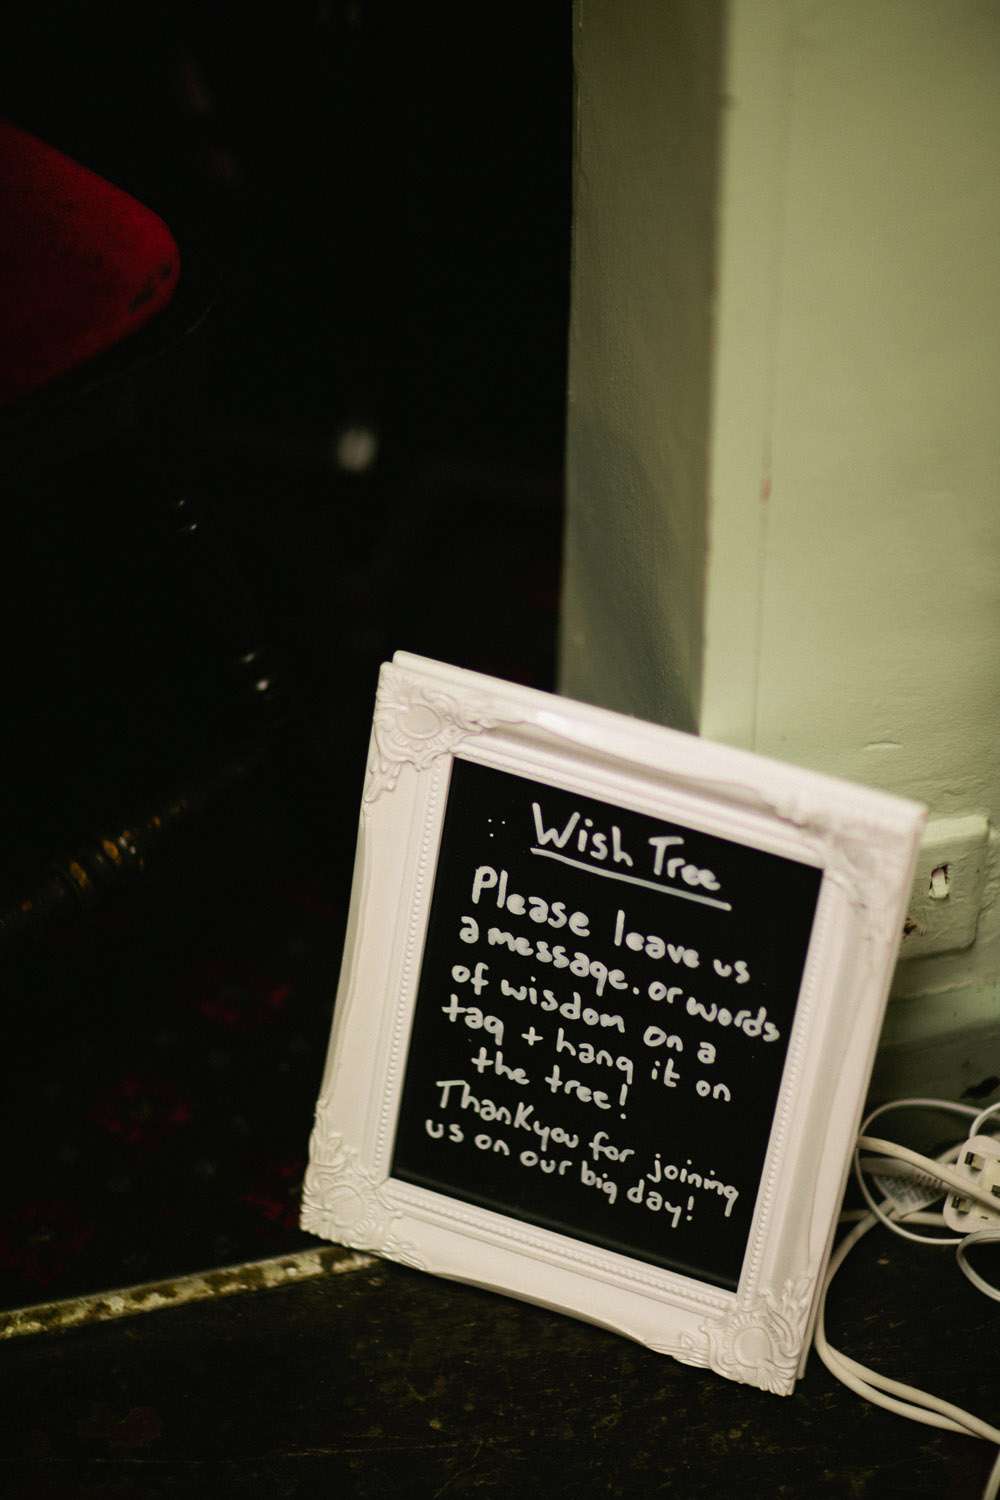 Wish Tree
Please leave us
a message. or words
of wisdom on a
tag + hang it on
the tree!
Thankyou for joining
us on our big day!